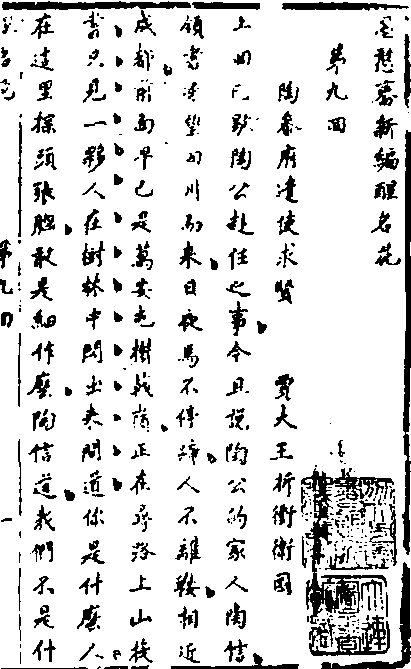 新編醒名花
第九回
陶參府遣使求賢 賈大王折衝衛國
上回已說陶公赴任之事今且說陶公的家人陶信
領書望四川而來日夜馬不停蹄人不離鞍相近
成都前面早已是萬安樹正在尋路上山
只見一夥人在樹林中閃出來問道你是什麽人
在這里探頭張腦敢是細作麽陶信道我們不是什
第九回 一